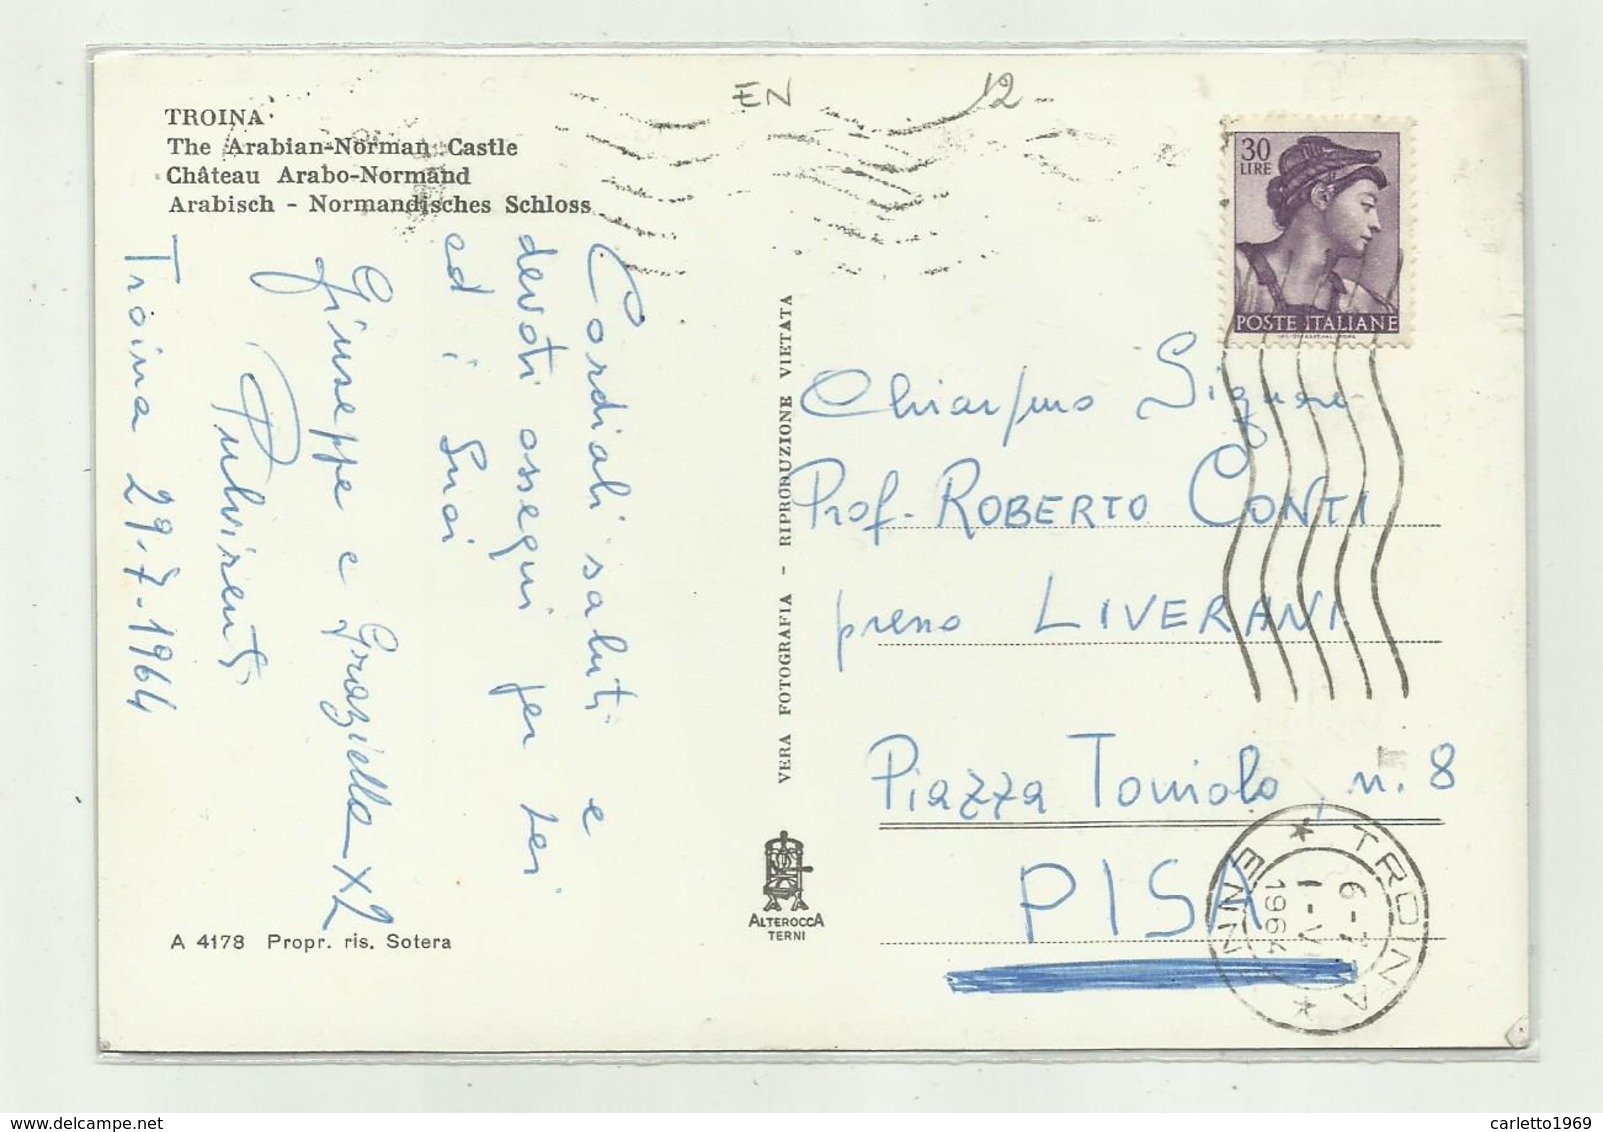 EN 12-
TROINA
The Arabian-Norman Castle
Château Arabo-Normand
Arabisch - Normandisches Schloss
30
LIRE
POSTE ITALIANE
Cordiali saluti e
devoti ossequi per Lei
ed i Suoi
Giuseppe e Graziella x2
Pulvirenti
Troina 29-7-1964
VERA FOTOGRAFIA - RIPRODUZIONE VIETATA
Prof. ROBERTO CONTI
presso LIVERANI
Piazza Toniolo, n. 8
PISA
TROINA
ENNA
1964
ALTEROCCA
TERNI
A 4178 Propr. ris. Sotera
delcampe.net
carletto1969